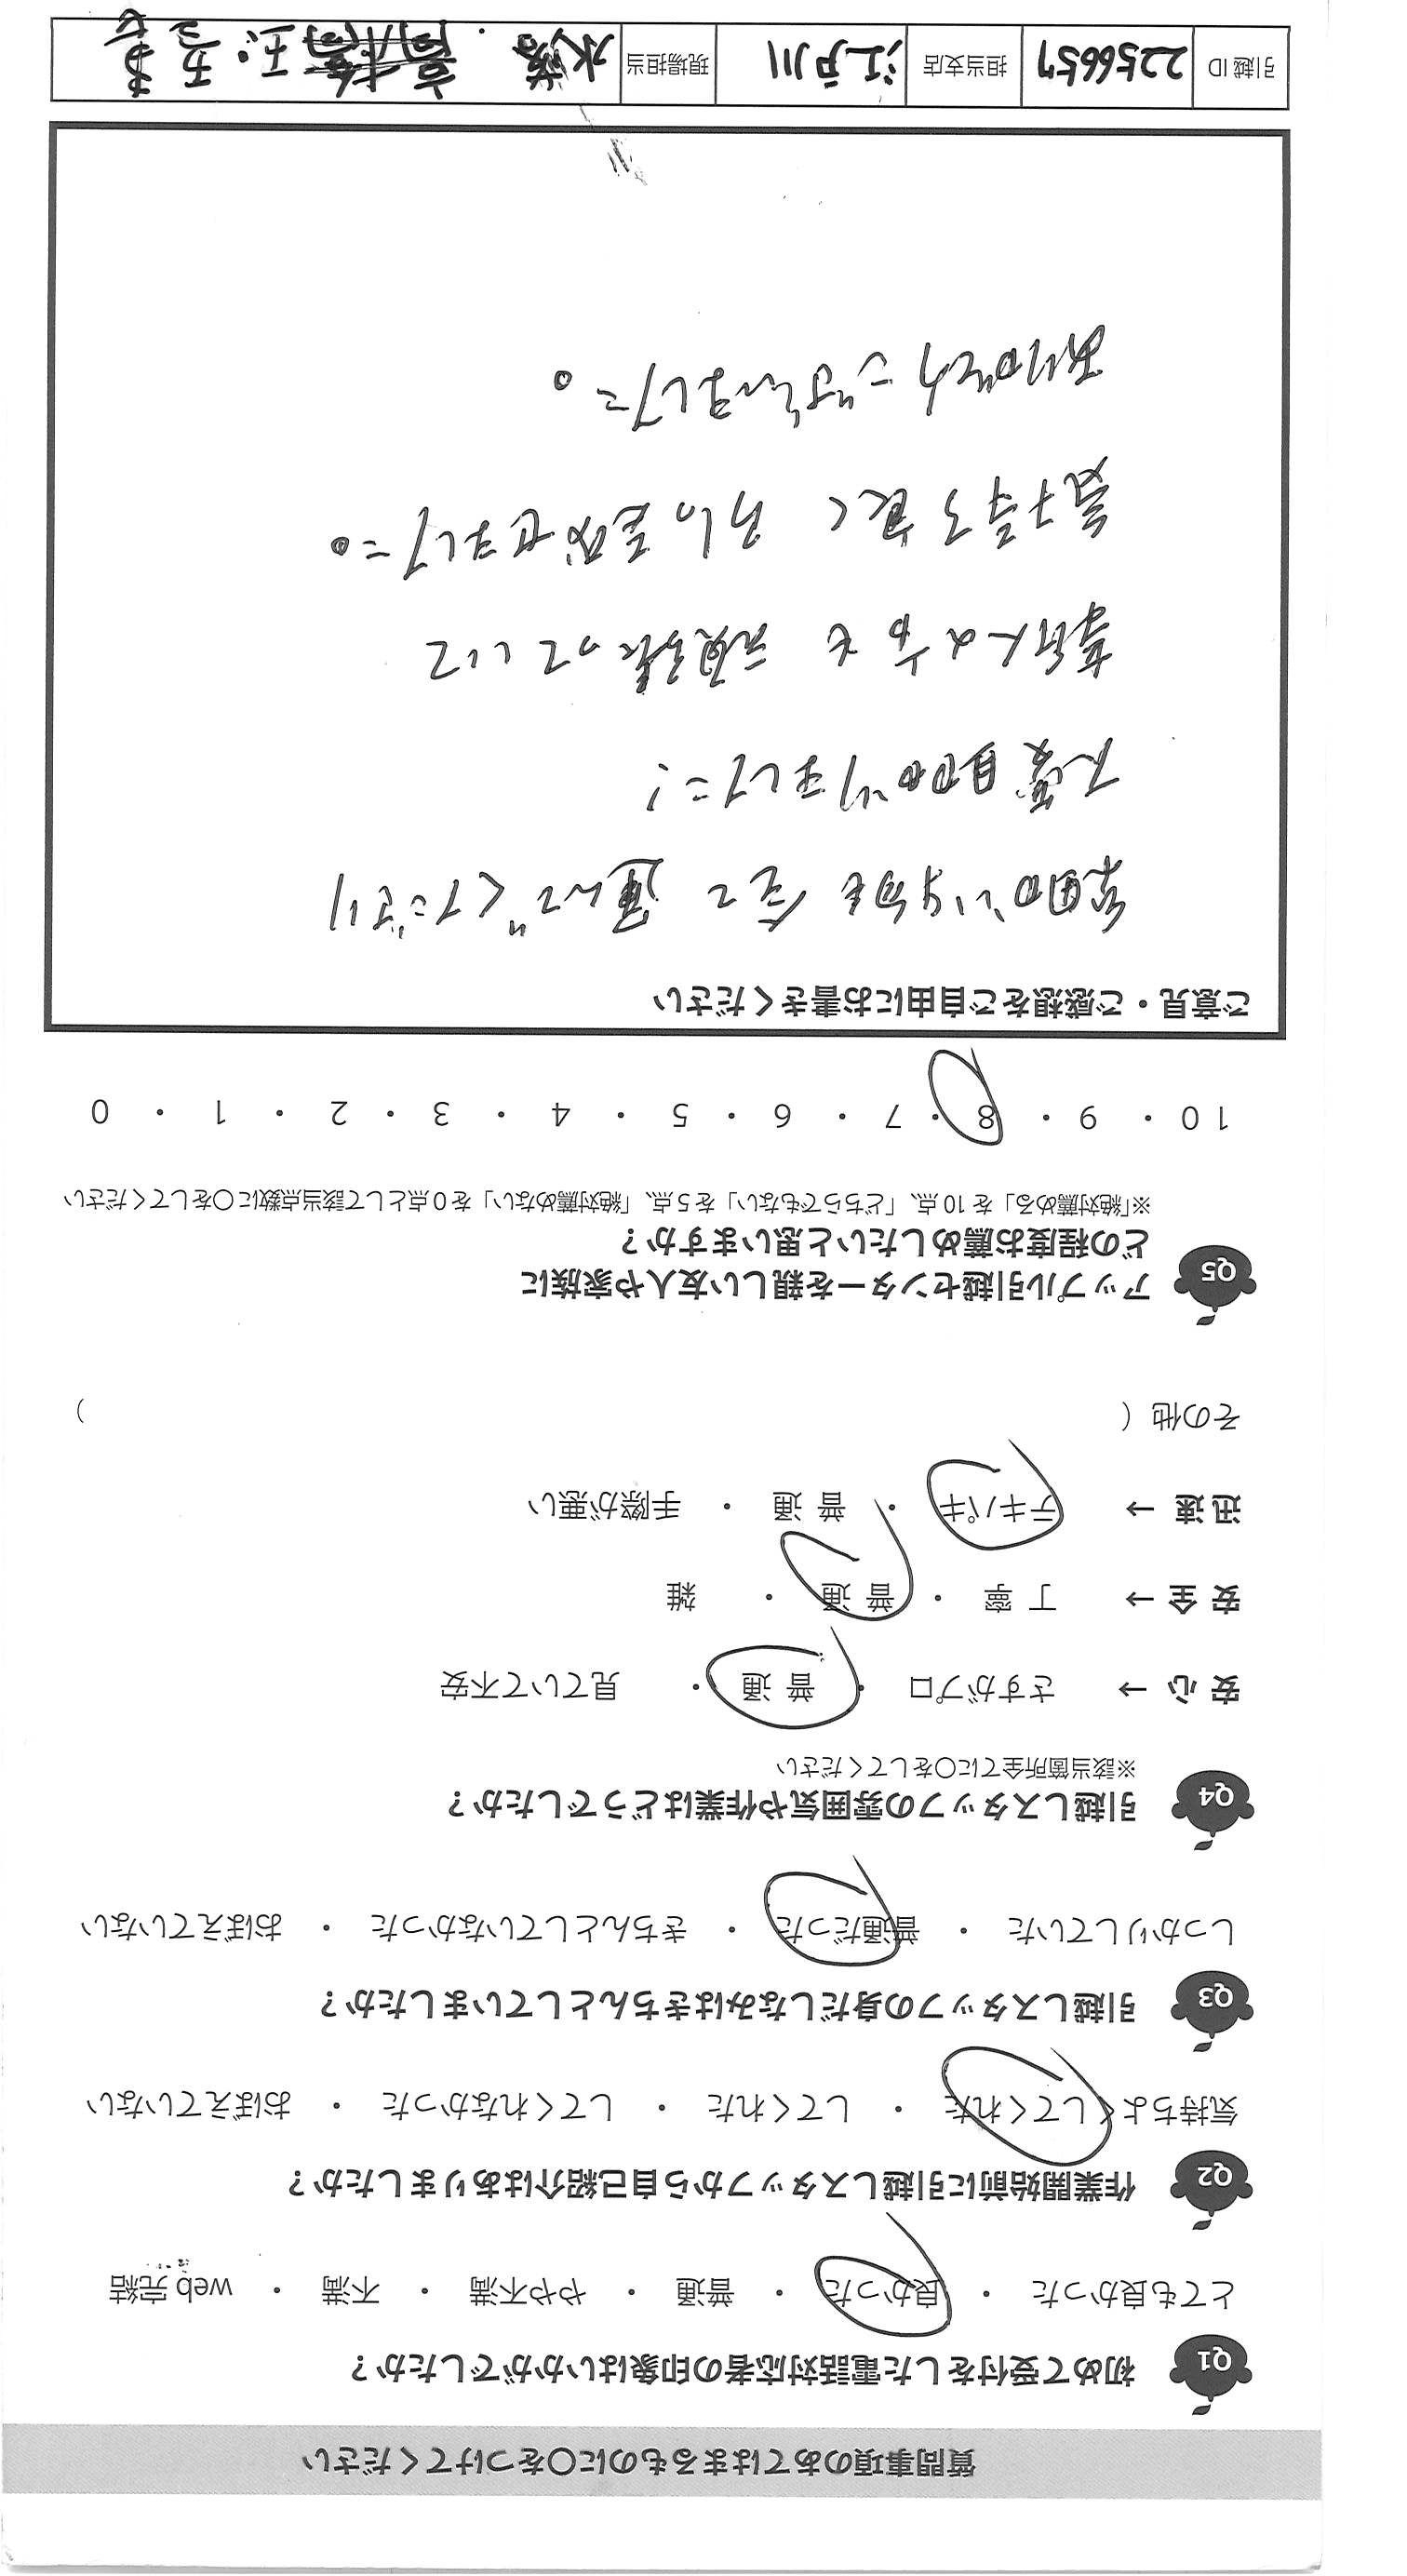 質問事項のあてはまるものに○をつけてください
Q1 初めて受付をした電話対応者の印象はいかがでしたか？
とても良かった ・ 良かった ・ 普通 ・ やや不満 ・ 不満 ・ web 完結
Q2 作業開始前に引越しスタッフから自己紹介はありましたか？
気持ちよくしてくれた ・ してくれた ・ してくれなかった ・ おぼえていない
Q3 引越しスタッフの身だしなみはきちんとしていましたか？
しっかりしていた ・ 普通だった ・ きちんとしていなかった ・ おぼえていない
Q4 引越しスタッフの雰囲気や作業はどうでしたか？
※該当箇所全てに○をしてください
安心 → さすがプロ ・ 普通 ・ 見ていて不安
安全 → 丁寧 ・ 普通 ・ 雑
迅速 → テキパキ ・ 普通 ・ 手際が悪い
その他 （ ）
Q5 アップル引越センターを親しい友人や家族に
どの程度お薦めしたいと思いますか？
※「絶対薦める」を 10 点、「どちらでもない」を 5 点、「絶対薦めない」を 0 点として該当点数に○をしてください
10 ・ 9 ・ 8 ・ 7 ・ 6 ・ 5 ・ 4 ・ 3 ・ 2 ・ 1 ・ 0
ご意見・ご感想をご自由にお書きください
運んでくださり
大変助かりました！
新人の方も頑張っていて
良く
ありがとうございました。
引越 ID 2256657 担当支店 江戸川 現場担当